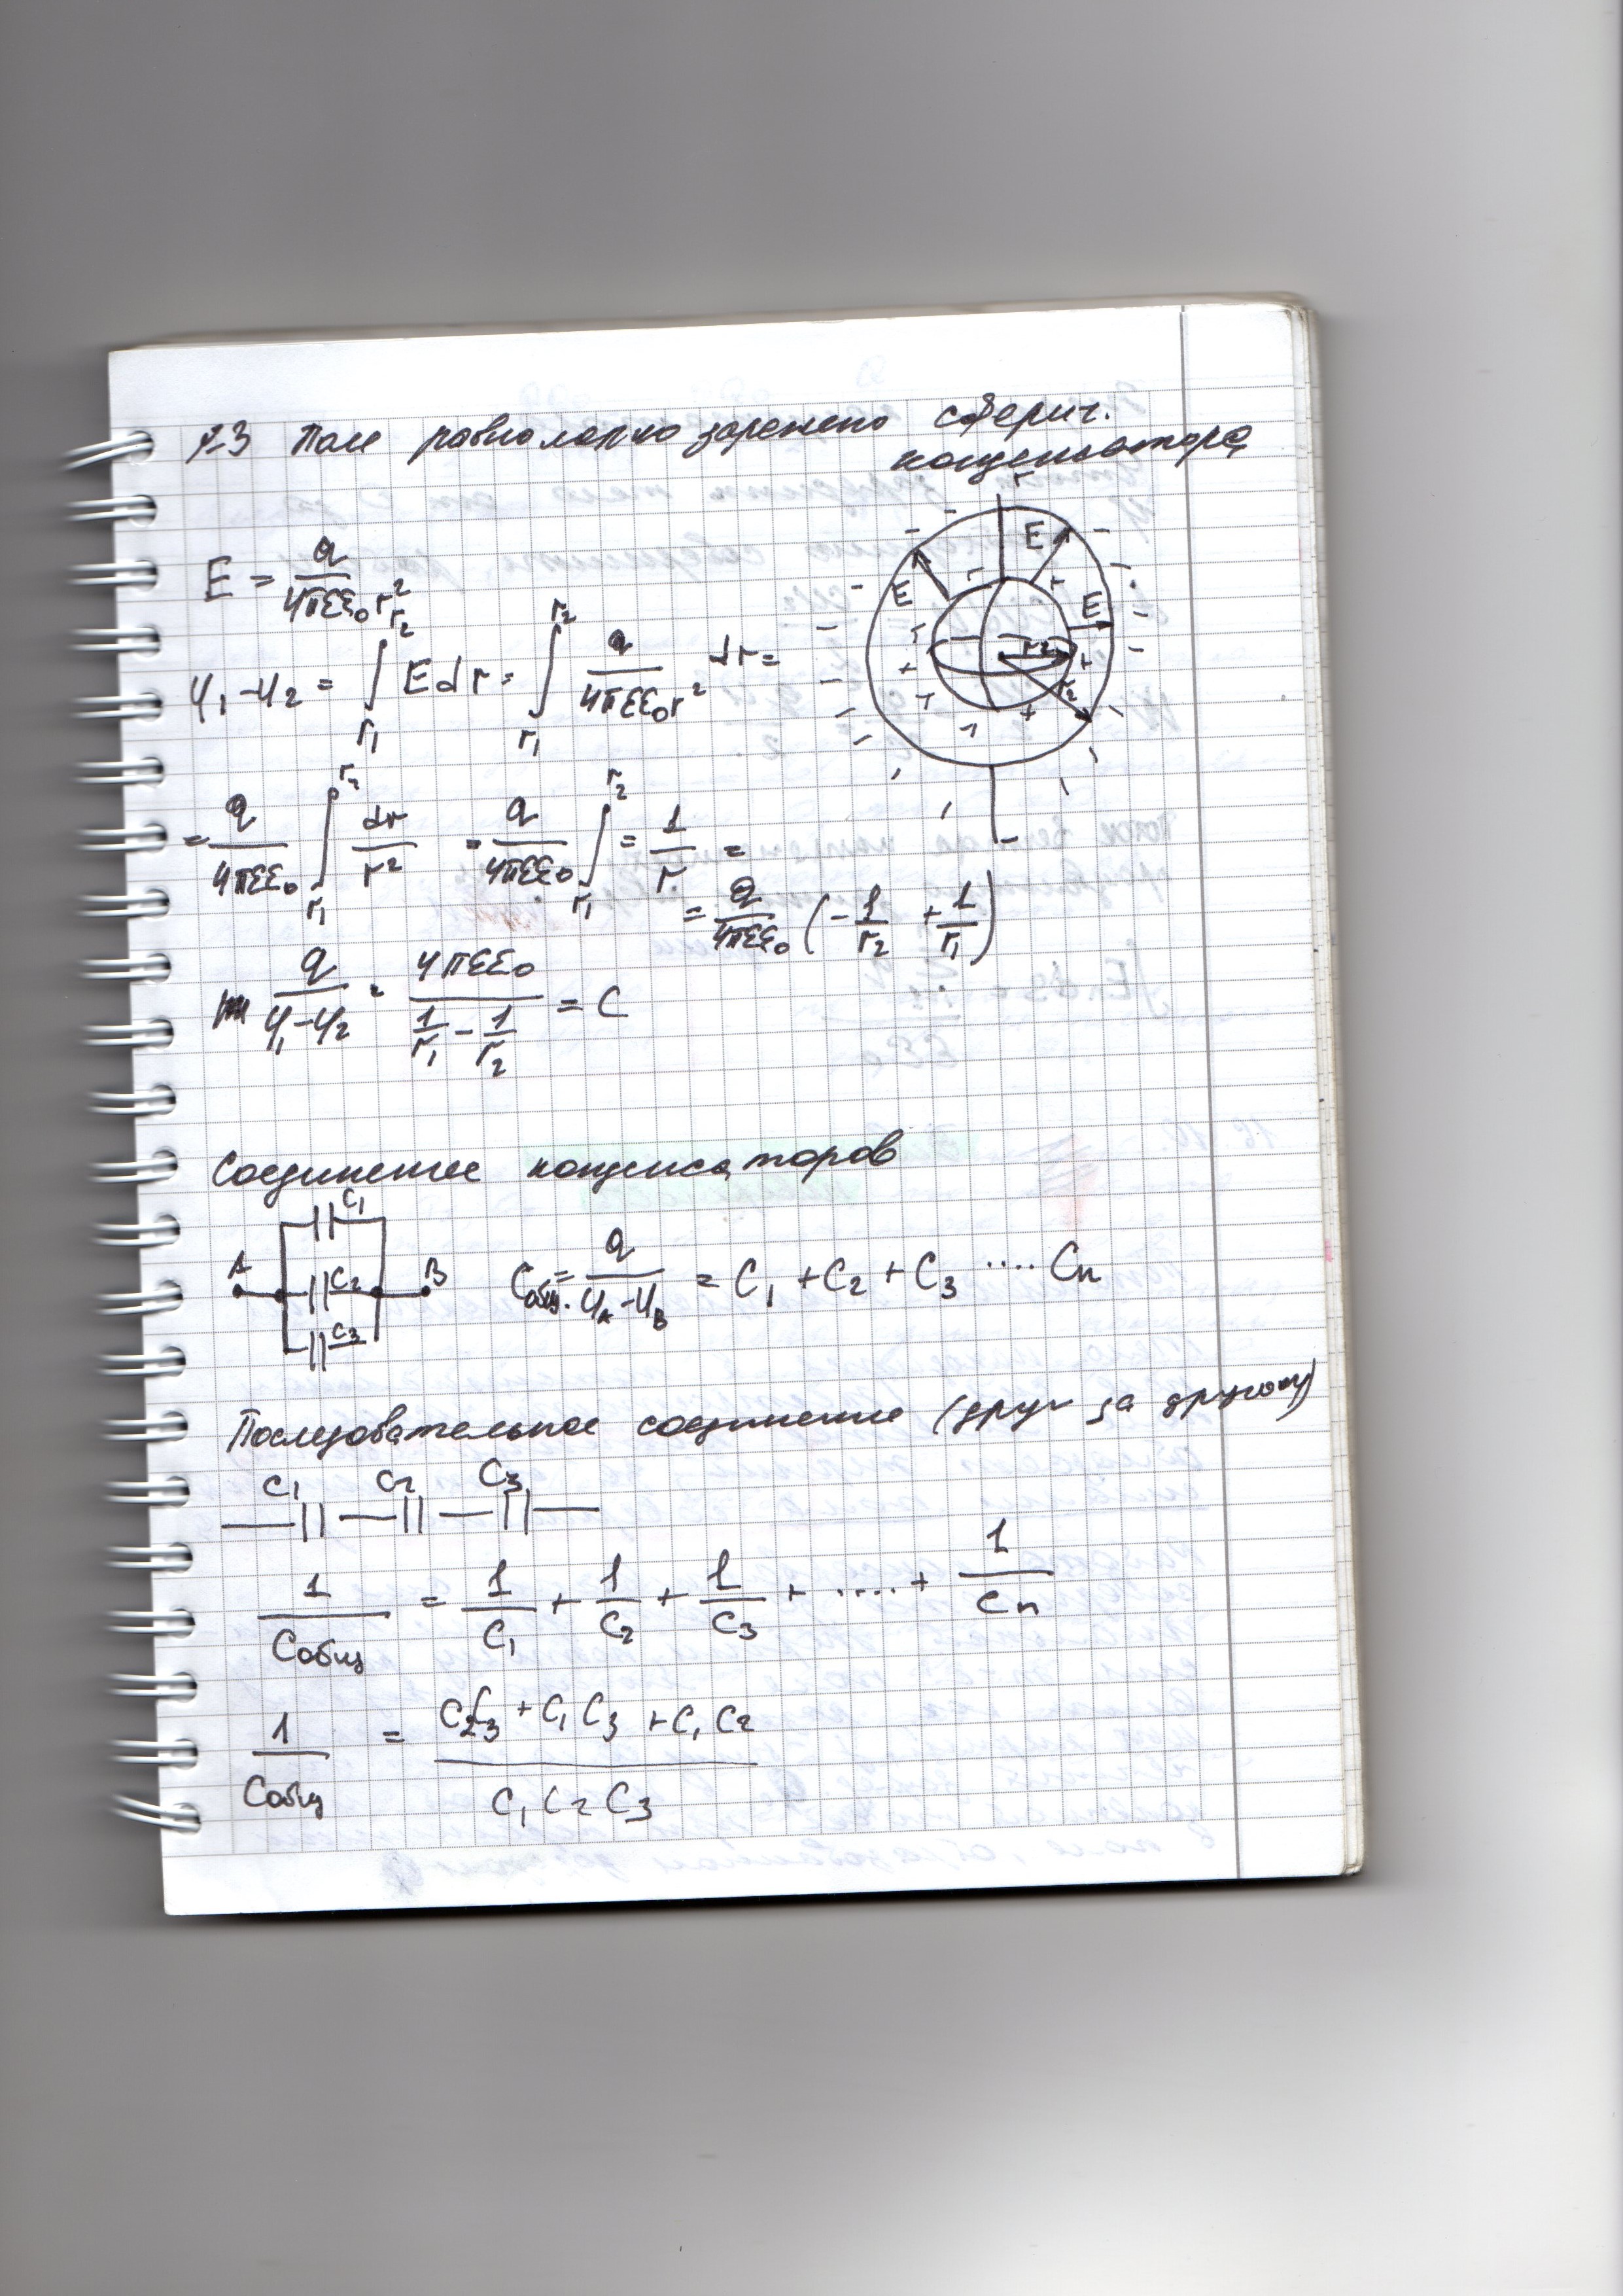 23 Поле равномерно заряжено сферич.
конденсатора
E = q / 4πεε₀r²
φ₁-φ₂ = ∫ r₁ r₂ E dr = ∫ r₁ r₂ q / 4πεε₀r² dr =
= q / 4πεε₀ ∫ r₁ r₂ dr / r² = q / 4πεε₀ ∫ r₁ r₂ = 1 / r =
= q / 4πεε₀ (- 1/r₂ + 1/r₁)
q / φ₁-φ₂ = 4πεε₀ / 1/r₁ - 1/r₂ = C
+
E
E
E
r₂
r₂
-
Соединение конденсаторов
C₁
A C₂ B
C₃
Cобщ. = q / φA-φB = C₁ + C₂ + C₃ .... Cn
Последовательное соединение (друг за другом)
C₁ C₂ C₃
1 / Cобщ = 1/C₁ + 1/C₂ + 1/C₃ + ....+ 1/Cn
1 / Cобщ = C₂C₃ + C₁C₃ + C₁C₂ / C₁C₂C₃